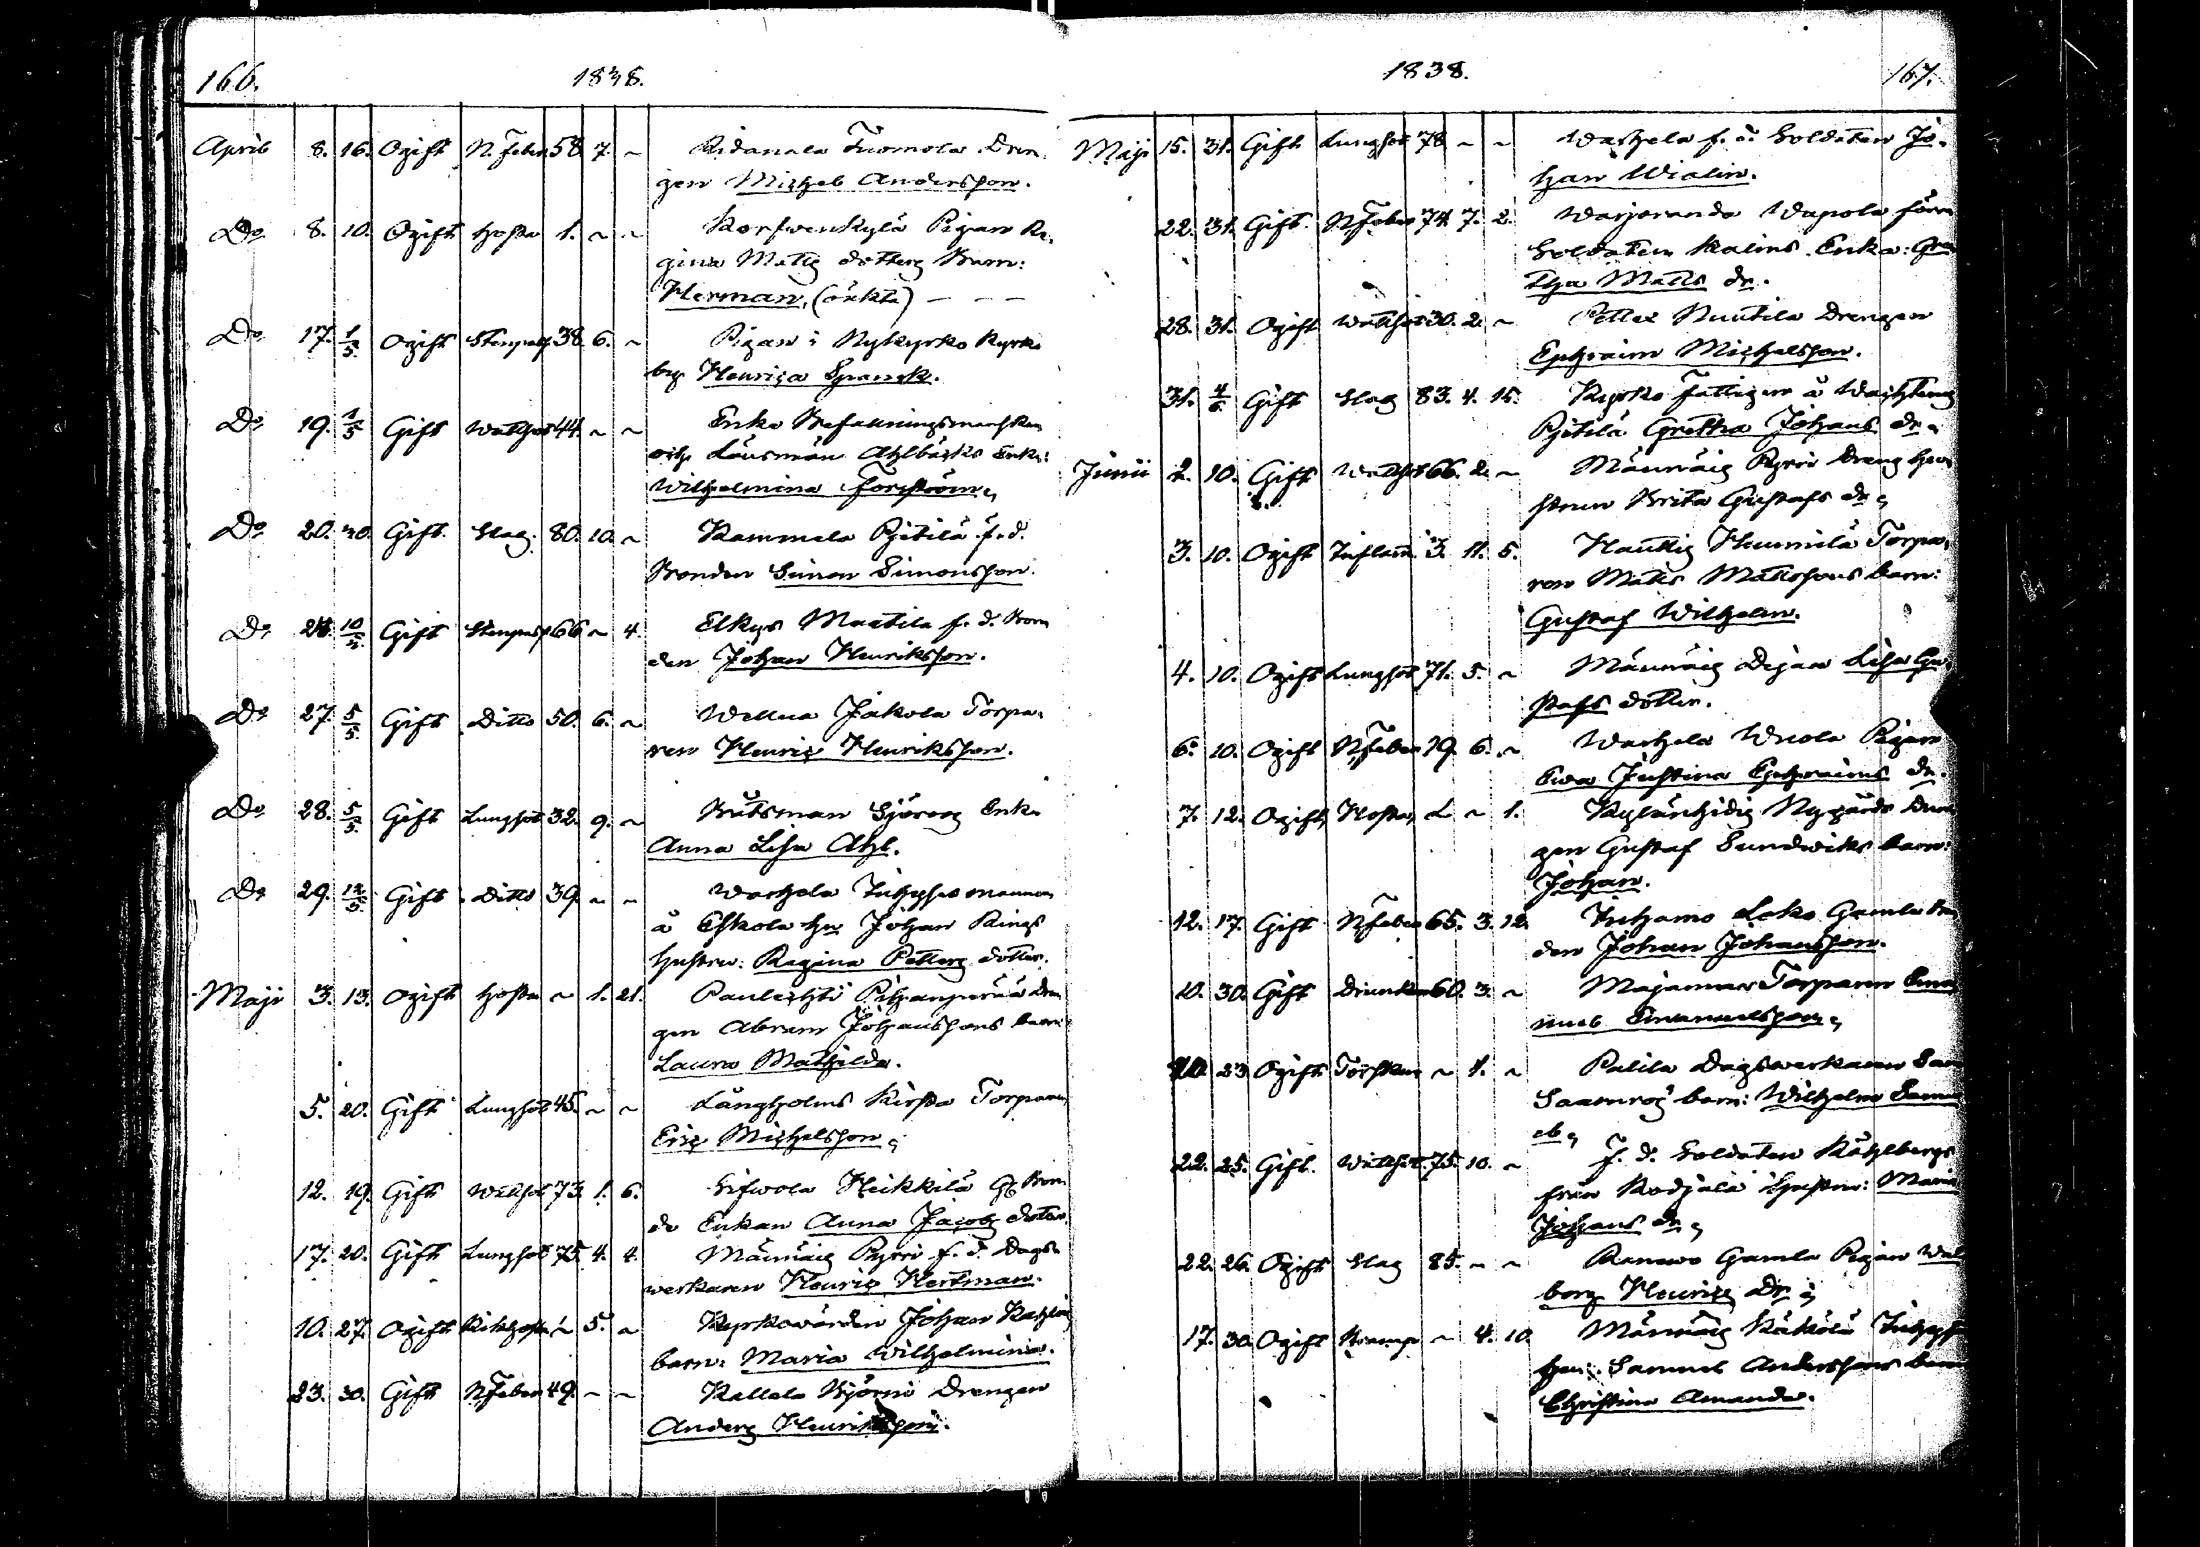 166. 1838.
April 8. 16. Ogift N. Feber 58. 7. ~ Ridanala Tuomola Dren,
gen Michel Andersson.
Do 8. 10. Ogift Hosta 1. ~ ~ Korfwenkylä Pigan Re,
gina Matts dotters Barn:
Herman, (oäkta) — — —
Do 17. 1/5. Ogift Stenpass 38. 6. ~ Pigan i Nykyrko Kyrko
by Henrica Spanck.
Do 19. 1/5 Gift Wattsot 44. ~ ~ Enka Befallningsmanskan
och Länsman Ahlbäcks Enka:
Wilhelmina Forsström,
Do 20. 30. Gift. Slag. 80. 10. ~ Kammela Pjetilä f. d.
Bonden Simon Simonsson.
Do 24. 10/5. Gift Stenpass 66 ~ 4. Elkys Mattila f. d. Bon
den Johan Henriksson.
Do 27. 5/5. Gift Ditto 50. 6. ~ Wellua Jakola Torpa,
ren Henric Henriksson.
Do 28. 5/5. Gift Lungsot 32. 9. ~ Båtsman Sjöroos Enka
Anna Lisa Ahl.
Do 29. 12/5. Gift Ditto 39. ~ ~ Warhela Inhyses mannen
å Eskola Johan Rings
hustru: Regina Petters dotter.
Maji 3. 13. Ogift Hosta ~ 1. 21. Pauleshti Pihanperää Dren
gen Abram Johanssons barn:
Laura Mathilda.
5. 20. Gift Lungsot 45. ~ ~ Långholms Kirsta Torparen
Eric Michelsson,
12. 19. Gift Wattsot 73. 1. 6. Sifwola Heikkilä Gl. Bon
de Enkan Anna Jacobs dotter.
17. 20. Gift Lungsot 75. 4. 4. Männäis Pyrri f. d. Dags,
werkaren Henric Hertman.
10. 27. Ogift Kikhosta ~ 5. ~ Kyrkowärden Johan
barn: Maria Wilhelmina.
23. 30. Gift N. Feber 49. ~ ~ Kallela Björni Drengen
Anders Henriksson.
1838. 167.
Maji 15. 31. Gift Lungsot 78. ~ ~ Warhela f. d. Soldaten Jo,
han Wialin.
22. 31. Gift. N. Feber 74. 7. 2. Warjoranda Wapola förra
Soldaten Kalins Enka: Gre
tha Matts dr.
28. 31. Ogift Wattsot 30. 2. ~ Pettes Nuutila Drengen
Ephraim Michelsson.
31. 4/6. Gift Slag 83. 4. 15. Kyrko Fattigen å
Pjetilä Gretha Johans dr.
Junii 2. 10. Gift Wattsot 66. 2. ~ Männäis Pyrri Dreng hu
strun Brita Gustafs dr,
3. 10. Ogift Inflam 3. 11. 5. Hautis Heunilä Torpa,
ren Matts Mattssons barn:
Gustaf Wilhelm.
4. 10. Ogift Lungsot 71. 5. ~ Männäis Dejan Lisa Gu,
stafs dotter.
6. 10. Ogift N. Feber 19. 6. ~ Warhela Uusla Pigan
Ewa Justina Ephraims dr.
7. 12. Ogift Hosta ~ ~ 1. Kylänhidis Nygårds Dren
gen Gustaf Sundwiks barn:
Johan.
12. 17. Gift N. Feber 65. 3. 12. Juhamo Loko Gamla Bon
den Johan Johansson.
10. 30. Gift Drunknat 60. 3. ~ Majamaa Torparen Ema
nuel Emanuelsson,
20. 23. Ogift Törsken ~ 1. ~ Palila Dagswerkaren Sam
Saamros barn: Wilhelm Samu
el,
22. 25. Gift. Wattsot. 75. 10. ~ F. d. Soldaten Kåhlbergs
från Kodjala hustru: Maria
Johans dr,
22. 26. Ogift Slag 85. ~ ~ Ranawo Gamla Pigan Wal
borg Henrics Dr,
17. 30. Ogift Kramp ~ 4. 10. Männäis Käkölä Inhyses
Samuel Anderssons barn
Christina Amanda.